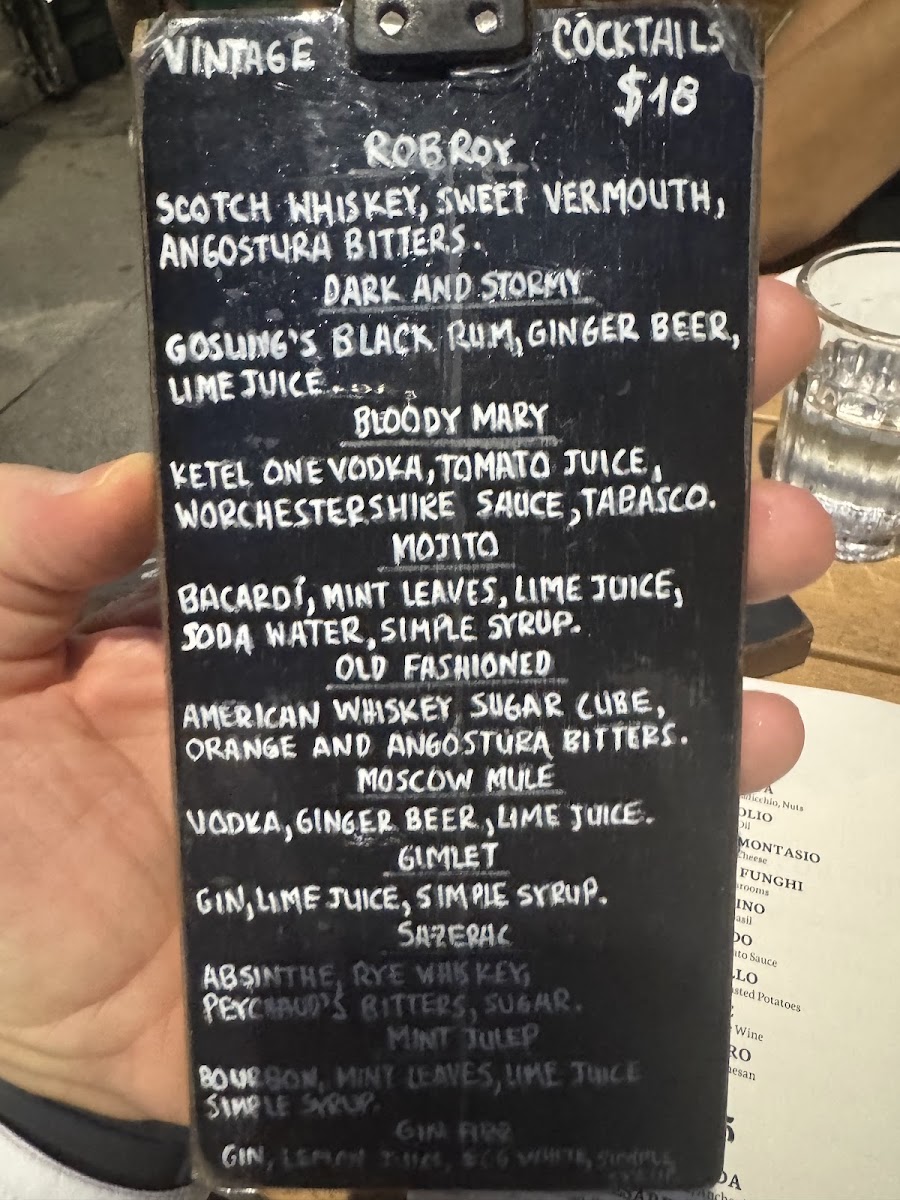 VINTAGE COCKTAILS
$18
ROB ROY
SCOTCH WHISKEY, SWEET VERMOUTH,
ANGOSTURA BITTERS.
DARK AND STORMY
GOSLING'S BLACK RUM, GINGER BEER,
LIME JUICE.
BLOODY MARY
KETEL ONE VODKA, TOMATO JUICE,
WORCHESTERSHIRE SAUCE, TABASCO.
MOJITO
BACARDÍ, MINT LEAVES, LIME JUICE,
SODA WATER, SIMPLE SYRUP.
OLD FASHIONED
AMERICAN WHISKEY SUGAR CUBE,
ORANGE AND ANGOSTURA BITTERS.
MOSCOW MULE
VODKA, GINGER BEER, LIME JUICE.
GIMLET
GIN, LIME JUICE, SIMPLE SYRUP.
SAZERAC
ABSINTHE, RYE WHISKEY,
PEYCHAUD'S BITTERS, SUGAR.
MINT JULEP
BOURBON, MINT LEAVES, LIME JUICE
SIMPLE SYRUP.
GIN FIZZ
GIN, LEMON JUICE, EGG WHITE, SIMPLE
Nuts
MONTASIO
FUNGHI
Sauce
Potatoes
Wine